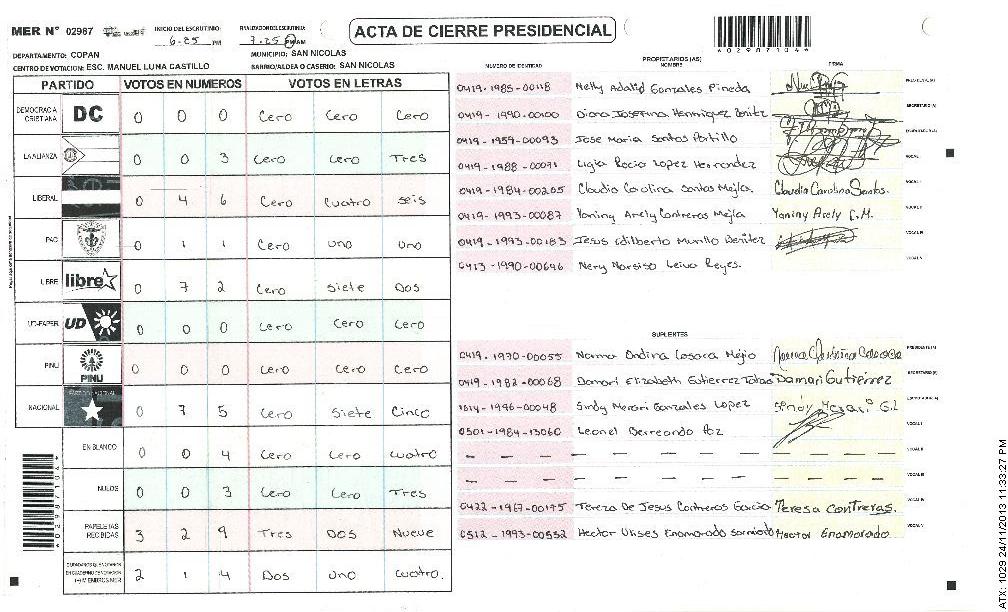 MER Nº 02987
INICIO DEL ESCRUTINIO:
6-25 PM
FINALIZACION DEL ESCRUTINIO:
7.25 PM AM
ACTA DE CIERRE PRESIDENCIAL
*029871044*
DEPARTAMENTO: COPAN
MUNICIPIO: SAN NICOLAS
CENTRO DE VOTACION: ESC. MANUEL LUNA CASTILLO
BARRIO/ALDEA O CASERIO: SAN NICOLAS
PARTIDO VOTOS EN NUMEROS VOTOS EN LETRAS
DEMOCRACIA CRISTIANA DC 0 0 0 Cero Cero Cero
LA ALIANZA 0 0 3 Cero Cero Tres
LIBERAL 0 4 6 Cero Cuatro seis
PAC 0 1 1 Cero uno uno
LIBRE libre 0 7 2 Cero siete Dos
UD-FAPER UD 0 0 0 Cero Cero Cero
PINU PINU 0 0 0 Cero Cero Cero
NACIONAL 0 7 5 Cero Siete Cinco
EN BLANCO 0 0 4 Cero Cero cuatro
NULOS 0 0 3 Cero Cero Tres
PAPELETAS RECIBIDAS 3 2 9 Tres Dos Nueve
2 1 4 Dos uno cuatro.
NUMERO DE IDENTIDAD
PROPIETARIOS (AS)
NOMBRE
FIRMA
0419-1985-00118 Nelly Adalid Gonzales Pineda
0419-1990-00100 Diana Josefina Henriquez Benitez
0419-1959-00093 Jose Maria Santos Portillo
0419-1988-00091 Ligia Rocio Lopez Hernandez
0419-1984-00205 Claudia Carolina Santos Mejia. Claudia Carolina Santos.
0419-1993-00087 Yaniny Arely Contreras Mejia Yaniny Arely C.M.
0419-1993-00183 Jesus Edilberto Murillo Benitez
0413-1990-00646 Nery Narsiso Leiva Reyes.
SUPLENTES
0419-1970-00055 Norma Ondina
0419-1982-00068 Damari Elizabeth Gutierrez Damari Gutiérrez
1614-1996-00048 Sindy Merari Gonzales Lopez
0501-1984-13060 Leonel
0422-1967-00175 Tereza De Jesus Contreras Garcia Teresa Contreras.
0512-1993-00552 Hector Ulises Enamorado Sarmiento Hector Enamorado
*029871044*
ATX: 1029 24/11/2013 11:33:27 PM